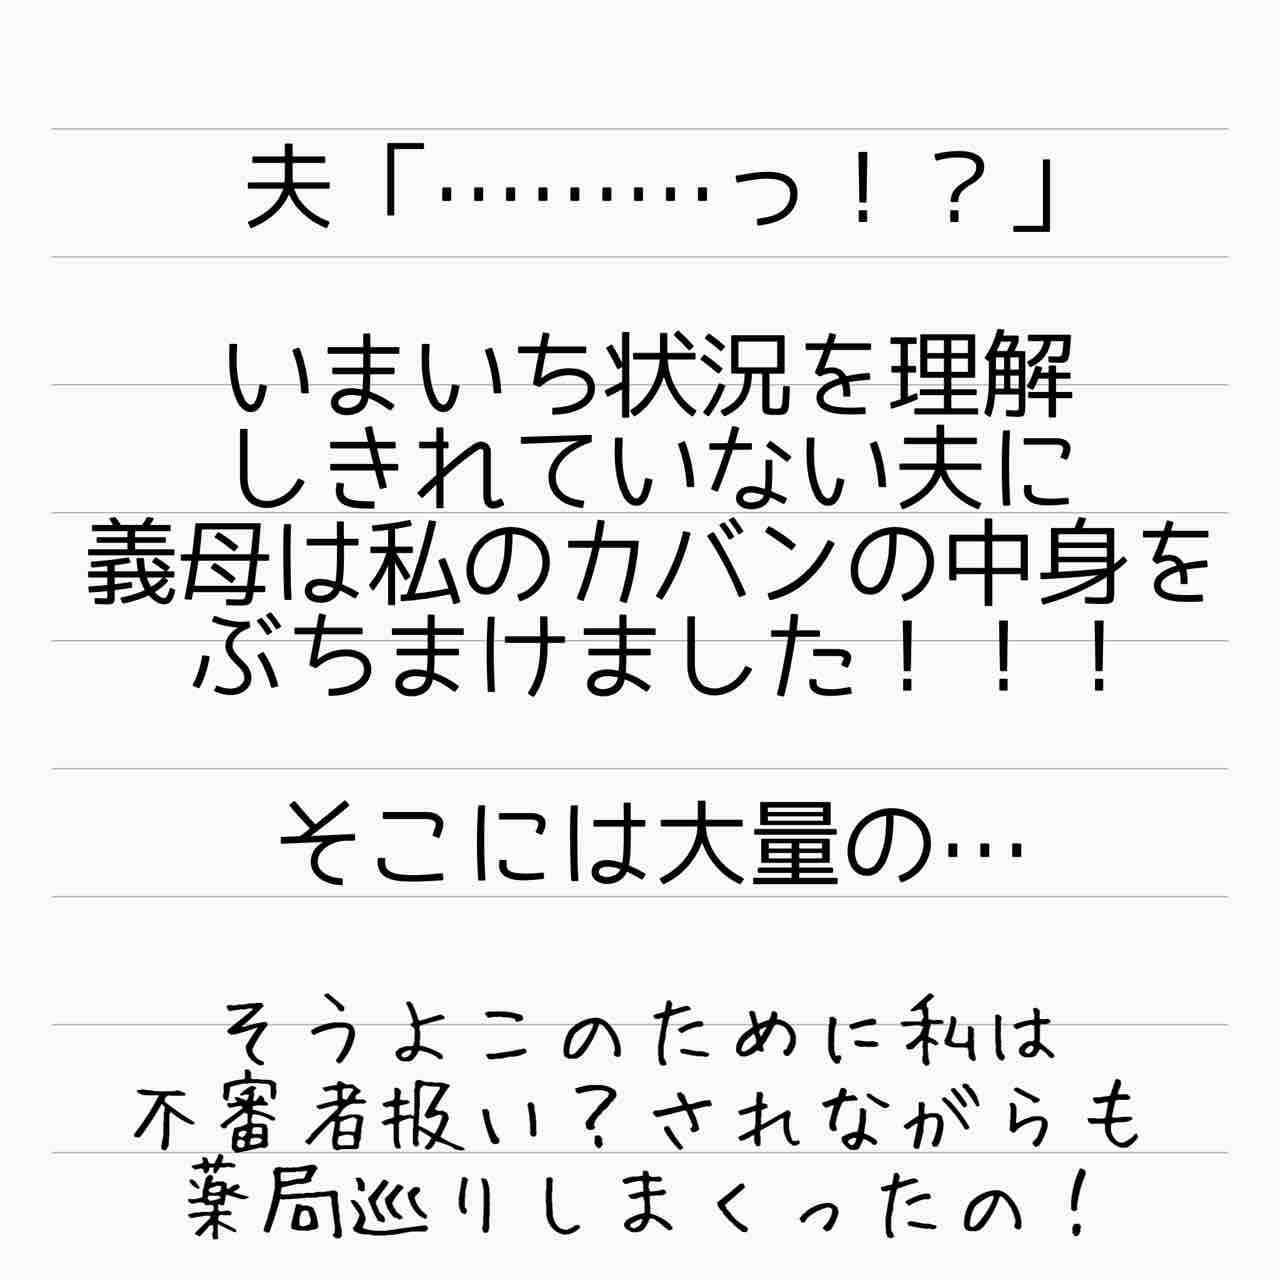 夫「………っ！？」
いまいち状況を理解
しきれていない夫に
義母は私のカバンの中身を
ぶちまけました！！！
そこには大量の…
そうよこのために私は
不審者扱い？されながらも
薬局巡りしまくったの！